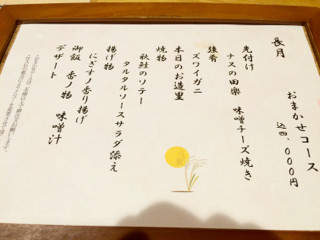 長月
おまかせコース
込四、000円
先付け
ナスの田楽 味噌チーズ焼き
強肴
ズワイガニ
本日のお造里
焼物
秋鮭のソテー
タルタルソースサラダ添え
揚げ物
にぎすノ香り揚げ
御飯 香ノ物 味噌汁
デザート